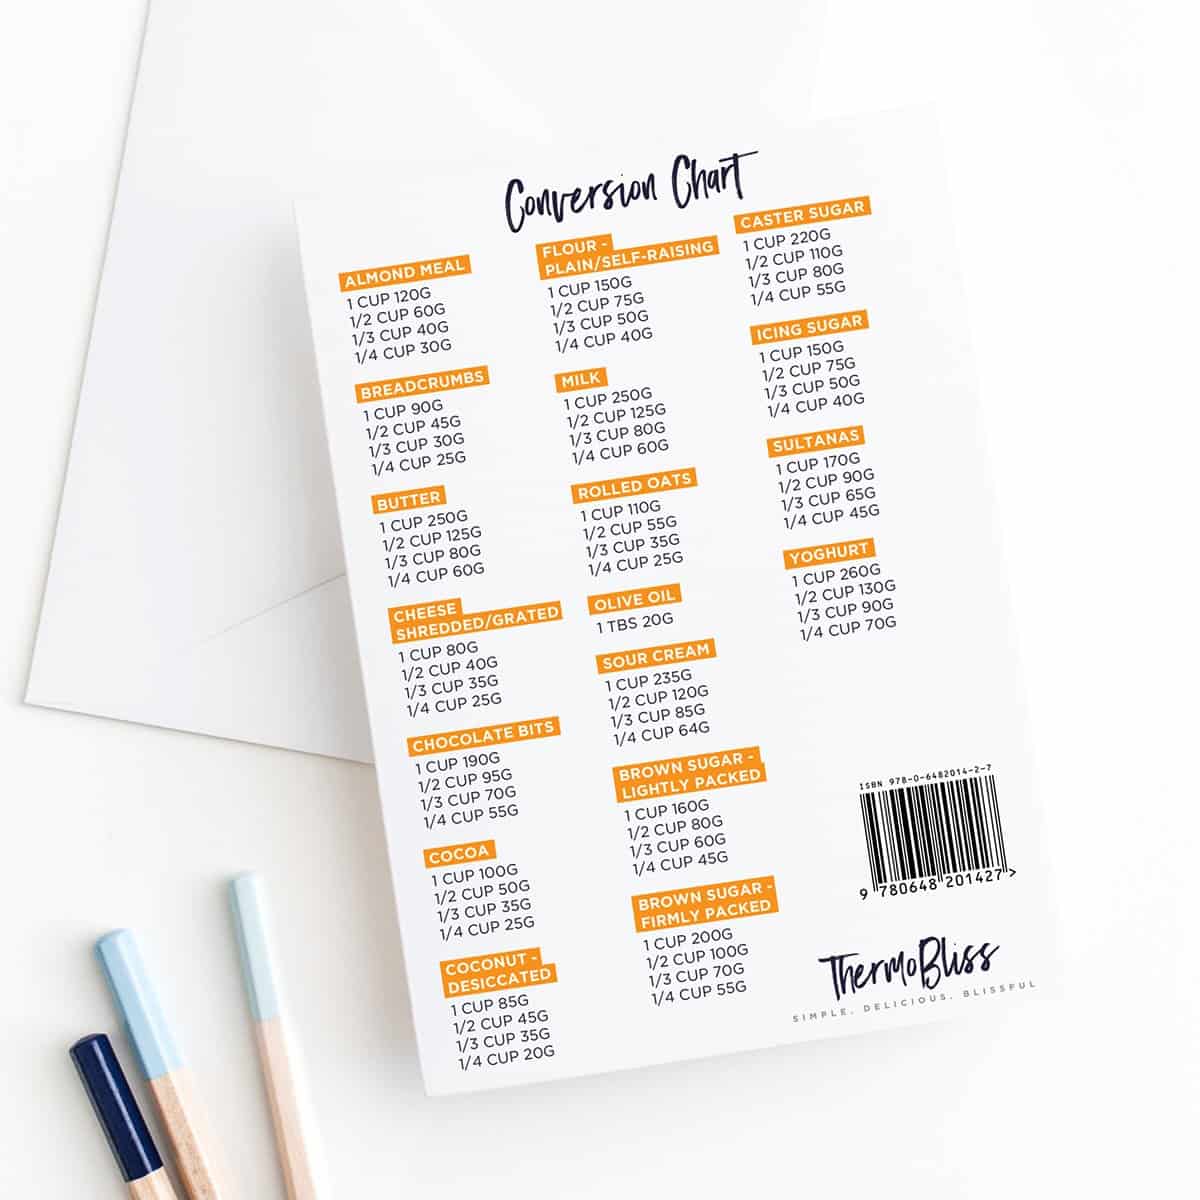 Conversion Chart
ALMOND MEAL
1 CUP 120G
1/2 CUP 60G
1/3 CUP 40G
1/4 CUP 30G
BREADCRUMBS
1 CUP 90G
1/2 CUP 45G
1/3 CUP 30G
1/4 CUP 25G
BUTTER
1 CUP 250G
1/2 CUP 125G
1/3 CUP 80G
1/4 CUP 60G
CHEESE
SHREDDED/GRATED
1 CUP 80G
1/2 CUP 40G
1/3 CUP 35G
1/4 CUP 25G
CHOCOLATE BITS
1 CUP 190G
1/2 CUP 95G
1/3 CUP 70G
1/4 CUP 55G
COCOA
1 CUP 100G
1/2 CUP 50G
1/3 CUP 35G
1/4 CUP 25G
COCONUT -
DESICCATED
1 CUP 85G
1/2 CUP 45G
1/3 CUP 35G
1/4 CUP 20G
FLOUR -
PLAIN/SELF-RAISING
1 CUP 150G
1/2 CUP 75G
1/3 CUP 50G
1/4 CUP 40G
MILK
1 CUP 250G
1/2 CUP 125G
1/3 CUP 80G
1/4 CUP 60G
ROLLED OATS
1 CUP 110G
1/2 CUP 55G
1/3 CUP 35G
1/4 CUP 25G
OLIVE OIL
1 TBS 20G
SOUR CREAM
1 CUP 235G
1/2 CUP 120G
1/3 CUP 85G
1/4 CUP 64G
BROWN SUGAR -
LIGHTLY PACKED
1 CUP 160G
1/2 CUP 80G
1/3 CUP 60G
1/4 CUP 45G
BROWN SUGAR -
FIRMLY PACKED
1 CUP 200G
1/2 CUP 100G
1/3 CUP 70G
1/4 CUP 55G
CASTER SUGAR
1 CUP 220G
1/2 CUP 110G
1/3 CUP 80G
1/4 CUP 55G
ICING SUGAR
1 CUP 150G
1/2 CUP 75G
1/3 CUP 50G
1/4 CUP 40G
SULTANAS
1 CUP 170G
1/2 CUP 90G
1/3 CUP 65G
1/4 CUP 45G
YOGHURT
1 CUP 260G
1/2 CUP 130G
1/3 CUP 90G
1/4 CUP 70G
ISBN 978-0-6482014-2-7
9 780648 201427 >
ThermoBliss
SIMPLE. DELICIOUS. BLISSFUL